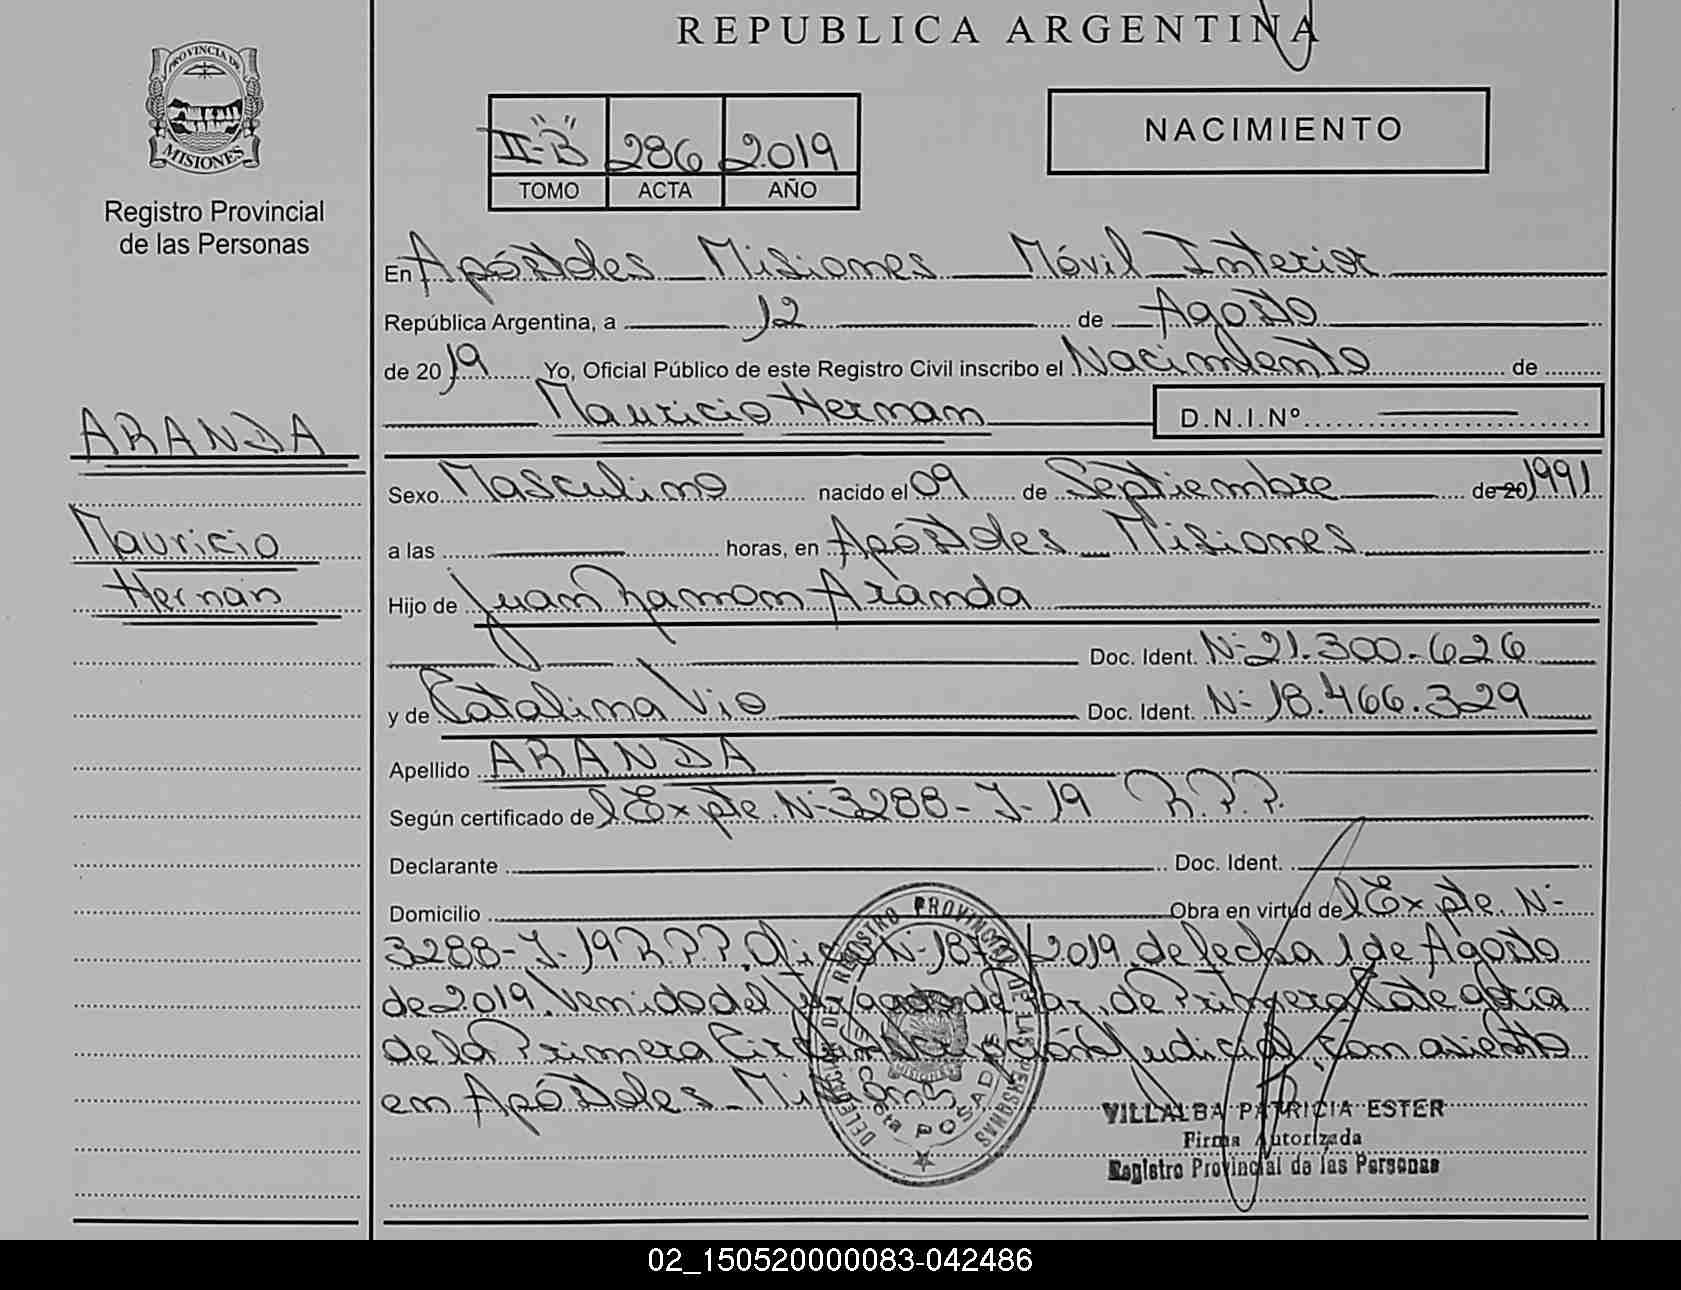 REPUBLICA ARGENTINA
PROVINCIA DE
MISIONES
Registro Provincial
de las Personas
II-"B" 286 2019
TOMO ACTA AÑO
NACIMIENTO
En Apóstoles Misiones Móvil Interior
República Argentina, a 12 de Agosto
de 2019 Yo, Oficial Público de este Registro Civil inscribo el Nacimiento de
Mauricio Hernan D.N.I.Nº
ARANDA
Mauricio
Hernán
Sexo Masculino nacido el 09 de Septiembre de 20 1991
a las horas, en Apóstoles Misiones
Hijo de Juan Ramon Aranda
Doc. Ident. Nº 21.300.626
y de Catalina Vio Doc. Ident. Nº 18.466.329
Apellido ARANDA
Según certificado de Expte. Nº 3288-J-19 R.P.P.
Declarante Doc. Ident.
Domicilio Obra en virtud de Expte. Nº
3288-J-19 R.P.P. Oficio Nº 2019 de fecha 1 de Agosto
de 2019. Venido del Juzgado de Paz de Primera Categoría
de la Primera Circunscripción Judicial, con asiento
en Apóstoles Misiones
DELEGACION DEL REGISTRO PROVINCIAL DE LAS PERSONAS
MISIONES
POSADAS
VILLALBA PATRICIA ESTER
Firma Autorizada
Registro Provincial de las Personas
02_150520000083-042486